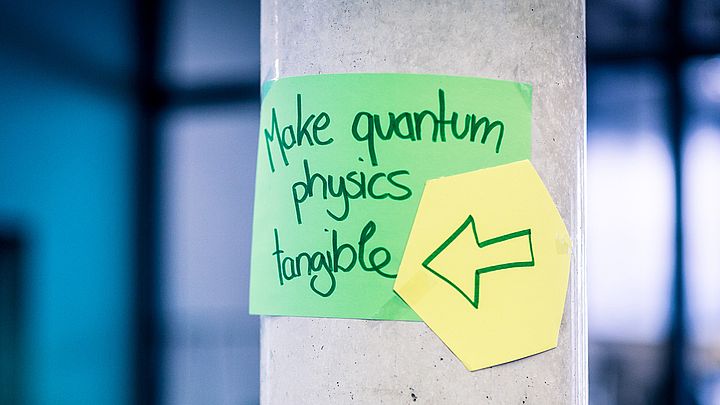 Make quantum
physics
tangible